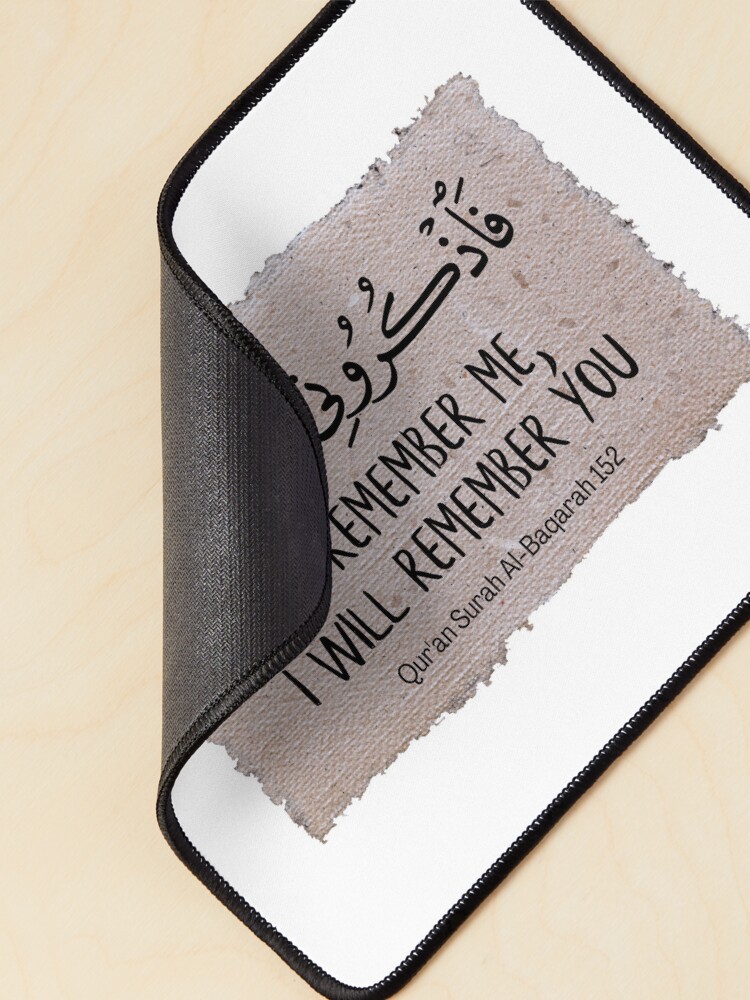 فَٱذۡكُرُونِي
REMEMBER ME,
I WILL REMEMBER YOU
Qur'an Surah Al-Baqarah 152